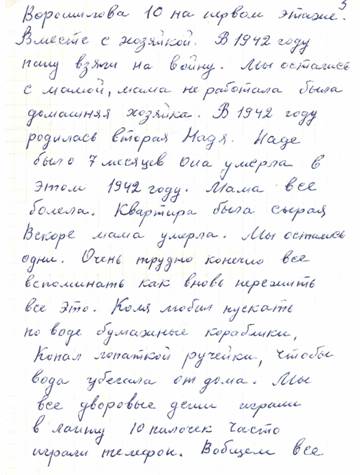 5
Ворошилова 10 на первом этаже.
Вместе с хозяйкой. В 1942 году
папу взяли на войну. Мы остались
с мамой, мама не работала была
домашняя хозяйка. В 1942 году
родилась вторая Надя. Наде
было 7 месяцев она умерла в
этом 1942 году. Мама все
болела. Квартира была сырая
Вскоре мама умерла. Мы остались
одни. Очень трудно конечно все
вспоминать как вновь пережить
все это. Коля любил пускать
по воде бумажные кораблики,
Копал лопаткой ручейки, чтобы
вода убегала от дома. Мы
все дворовые дети играли
в лапту 10 палочек часто
играли телефон. Вобщем все